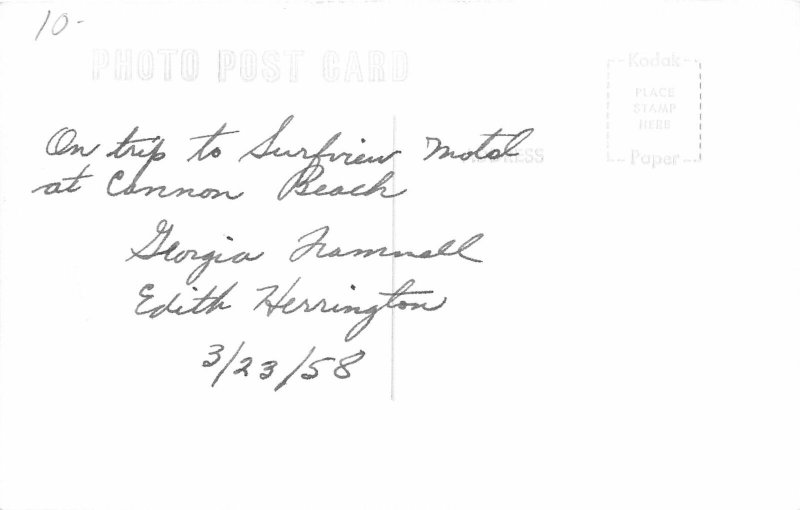 10-
PHOTO POST CARD
Kodak
PLACE
STAMP
HERE
Paper
ADDRESS
On trip to Surfview Motel
at Cannon Beach
Georgia
Edith Herrington
3/23/58